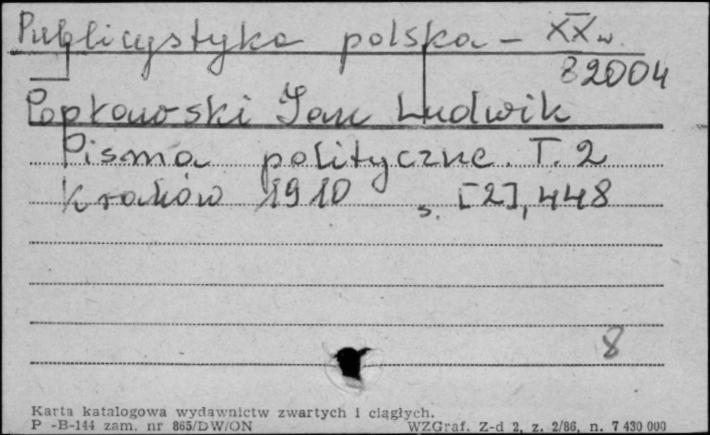 Publicystyka polska – XX w.
82004
Popławski Jan Ludwik
Pisma polityczne. T. 2
Kraków 1910 s. [2], 448
8
Karta katalogowa wydawnictw zwartych i ciągłych.
P -B-144 zam. nr 865/DW/ON WZGraf. Z-d 2, z. 2/86, n. 7 430 000